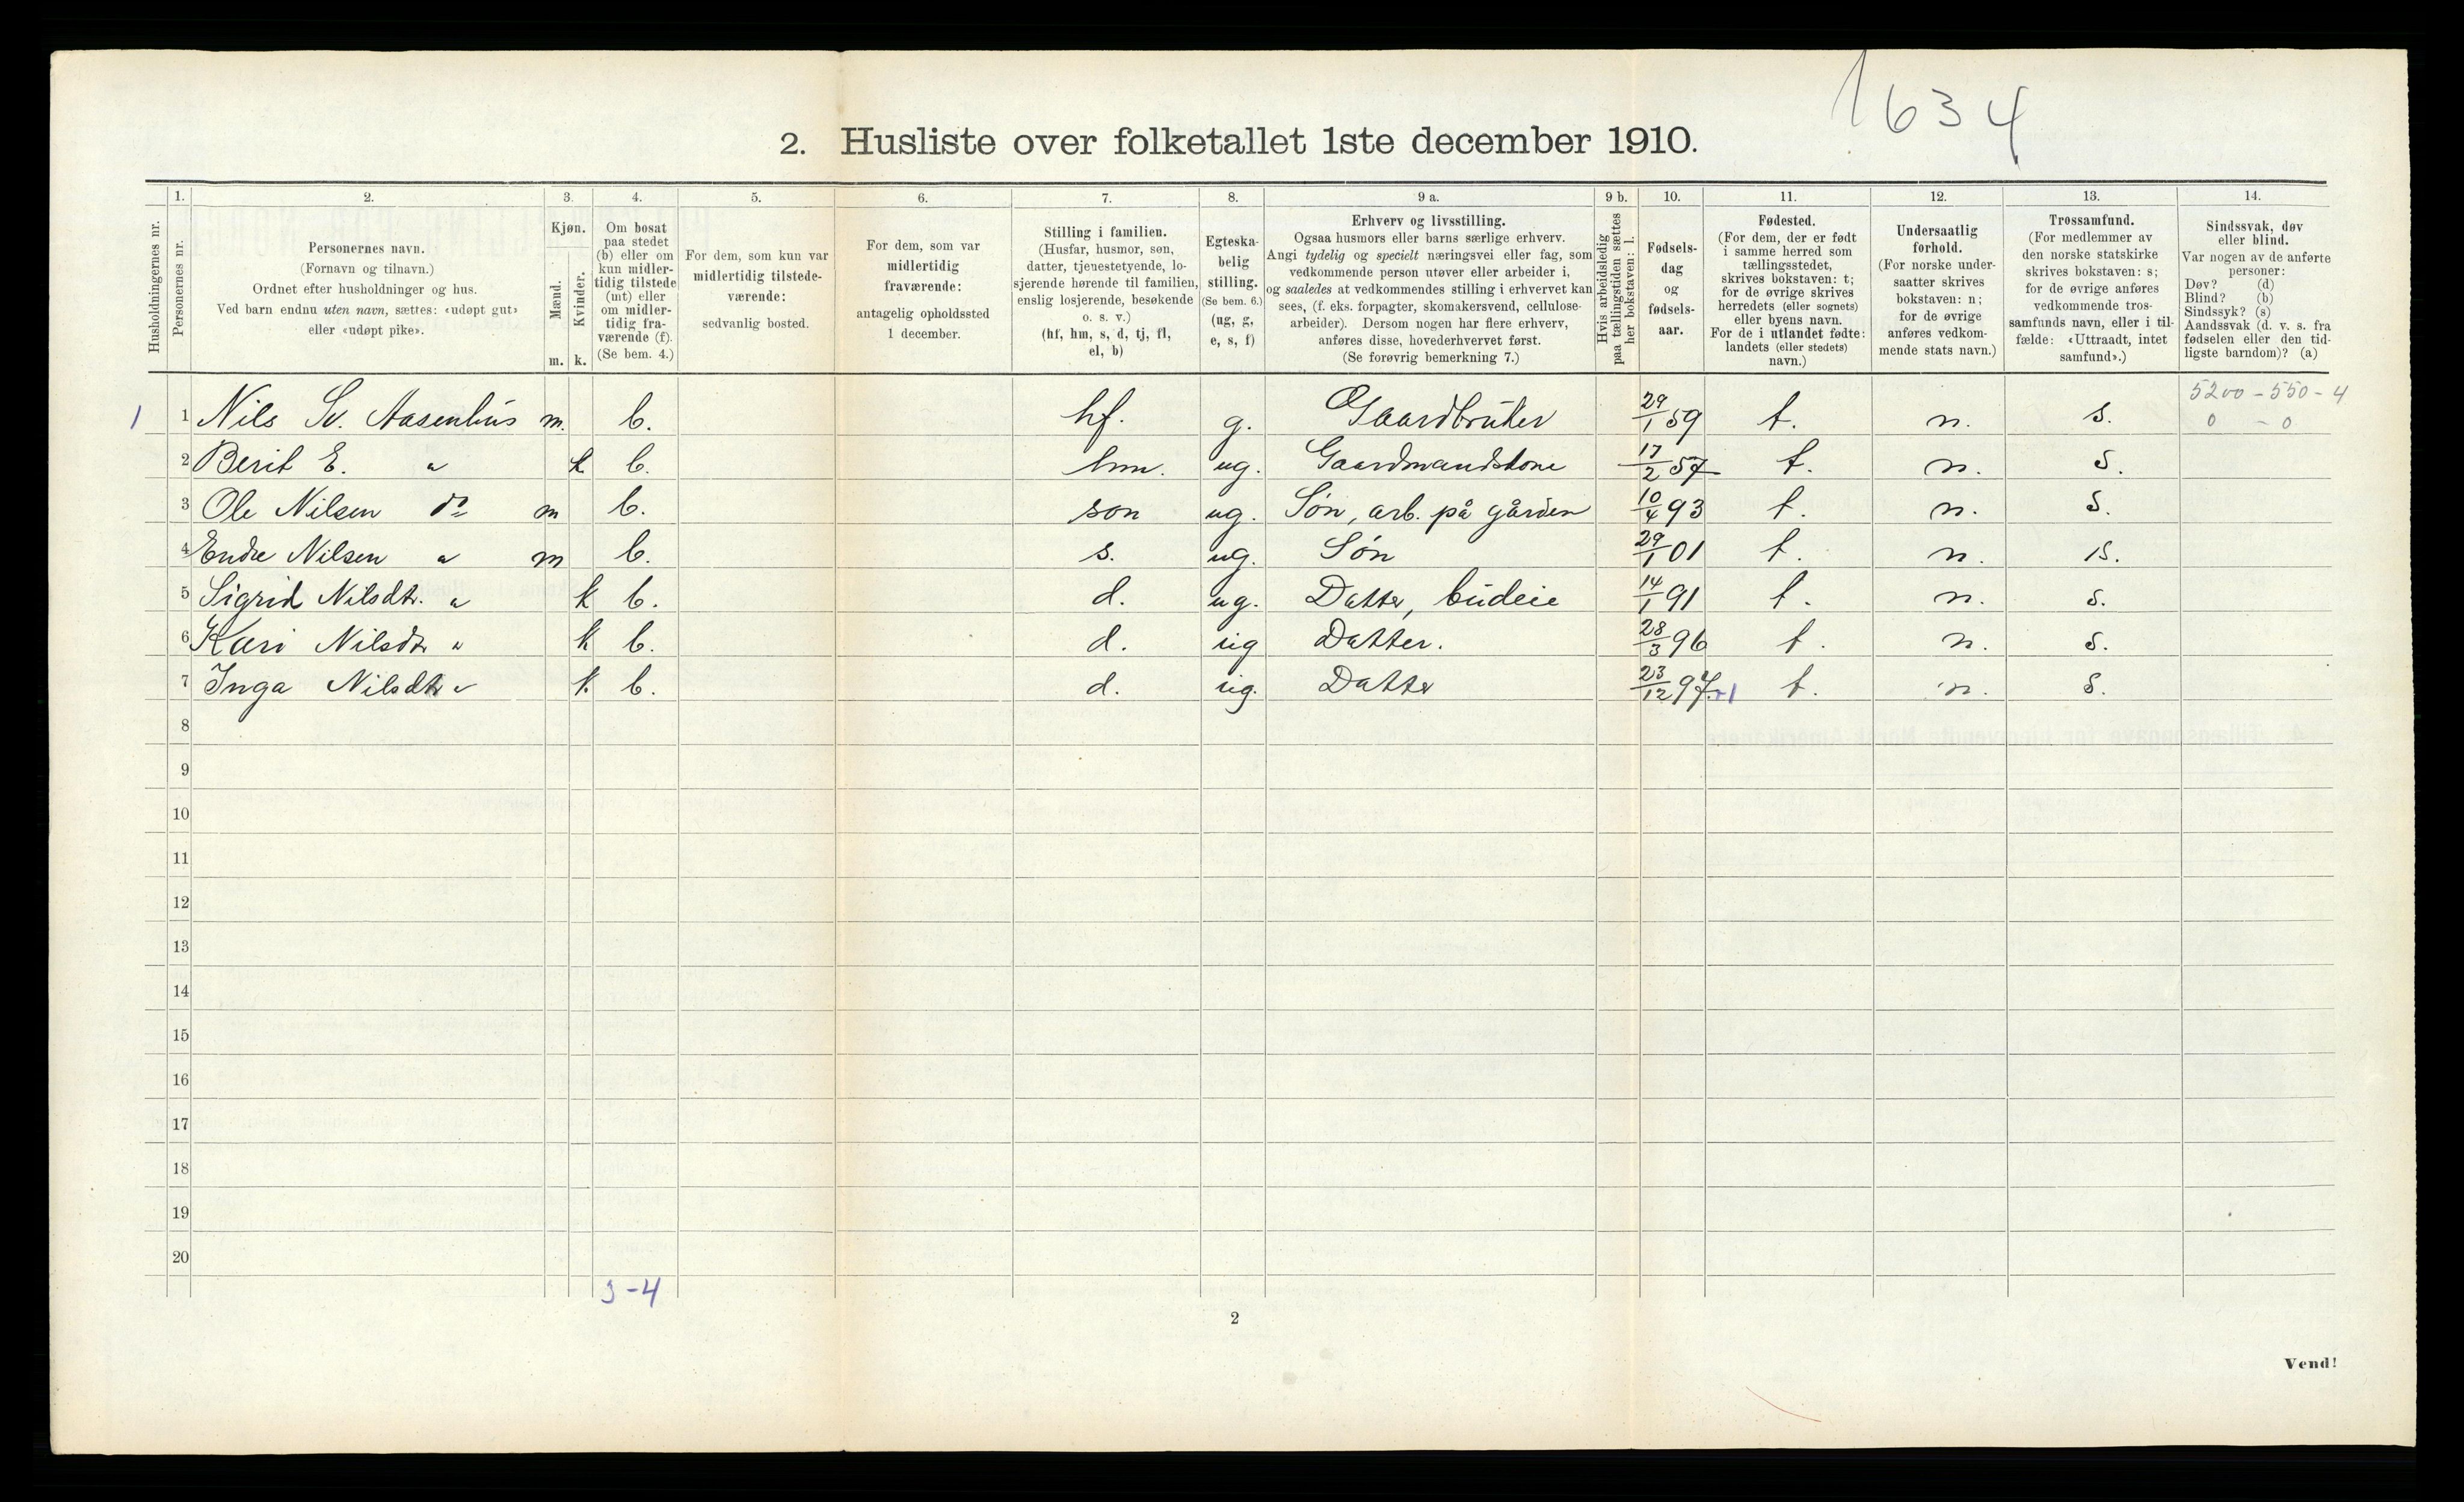 1634
2. Husliste over folketallet 1ste december 1910.
Husholdningernes nr.
1. Personernes nr.
2. Personernes navn. (Fornavn og tilnavn.) Ordnet efter husholdninger og hus. Ved barn endnu uten navn, sættes: «udøpt gut» eller «udøpt pike».
3. Kjøn. Mænd. m. Kvinder. k.
4. Om bosat paa stedet (b) eller om kun midlertidig tilstede (mt) eller om midlertidig fraværende (f). (Se bem. 4.)
5. For dem, som kun var midlertidig tilstedeværende: sedvanlig bosted.
6. For dem, som var midlertidig fraværende: antagelig opholdssted 1 december.
7. Stilling i familien. (Husfar, husmor, søn, datter, tjenestetyende, losjerende hørende til familien, enslig losjerende, besøkende o. s. v.) (hf, hm, s, d, tj, fl, el, b)
8. Egteskabelig stilling. (Se bem. 6.) (ug, g, e, s, f)
9 a. Erhverv og livsstilling. Ogsaa husmors eller barns særlige erhverv. Angi tydelig og specielt næringsvei eller fag, som vedkommende person utøver eller arbeider i, og saaledes at vedkommendes stilling i erhvervet kan sees, (f. eks. forpagter, skomakersvend, cellulosearbeider). Dersom nogen har flere erhverv, anføres disse, hovederhvervet først. (Se forøvrig bemerkning 7.)
9 b. Hvis arbeidsledig paa tællingstiden sættes her bokstaven: l.
10. Fødselsdag og fødselsaar.
11. Fødested. (For dem, der er født i samme herred som tællingsstedet, skrives bokstaven: t; for de øvrige skrives herredets (eller sognets) eller byens navn. For de i utlandet fødte: landets (eller stedets) navn.)
12. Undersaatlig forhold. (For norske undersaatter skrives bokstaven: n; for de øvrige anføres vedkommende stats navn.)
13. Trossamfund. (For medlemmer av den norske statskirke skrives bokstaven: s; for de øvrige anføres vedkommende trossamfunds navn, eller i tilfælde: «Uttraadt, intet samfund».)
14. Sindssvak, døv eller blind. Var nogen av de anførte personer: Døv? (d) Blind? (b) Sindssyk? (s) Aandssvak (d. v. s. fra fødselen eller den tidligste barndom)? (a)
5200 - 550 - 4
0 - 0
1 1 Nils Sv. Aasenhus m. b. hf. g. Gaardbruker 29/1 59 t. n. s.
2 Berit E. " k b. hm. ug. Gaardmandskone 17/2 57 t. n. s.
3 Ole Nilsen do m b. søn ug. Søn, arb. på gården 10/4 93 t. n. s.
4 Endre Nilsen " m b. s. ug. Søn 29/1 01 t. n. s.
5 Sigrid Nilsdtr. " k b. d. ug. Datter, budeie 14/1 91 t. n. s.
6 Kari Nilsdtr " k b. d. ug Datter. 28/3 96 t. n. s.
7 Inga Nilsdtr " k. b. d. ug. Datter 23/12 97 t. n. s.
8
9
10
11
12
13
14
15
16
17
18
19
20
3-4
2
Vend!